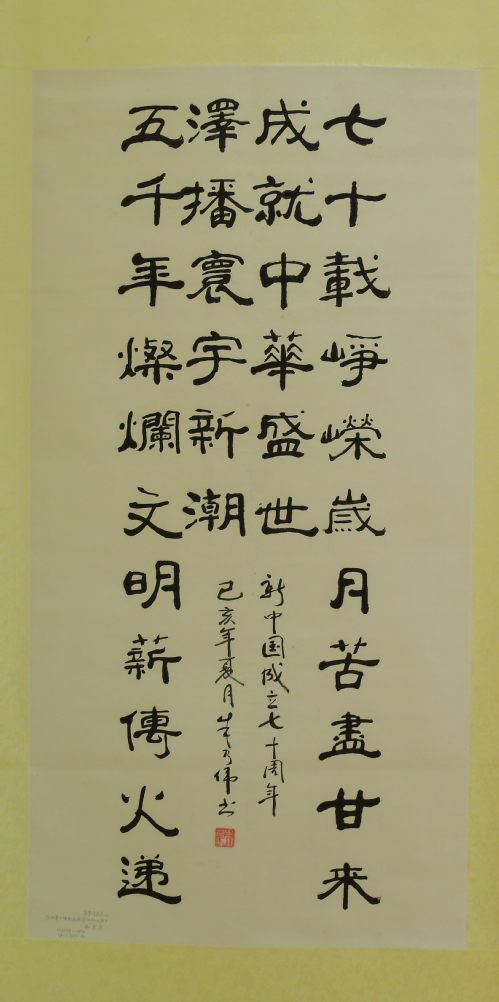 七十載崢嶸歲月苦盡甘来
成就中華盛世
五千年燦爛文明薪傳火递
澤播寰宇新潮
新中国成立七十周年
己亥年夏月乃伟书